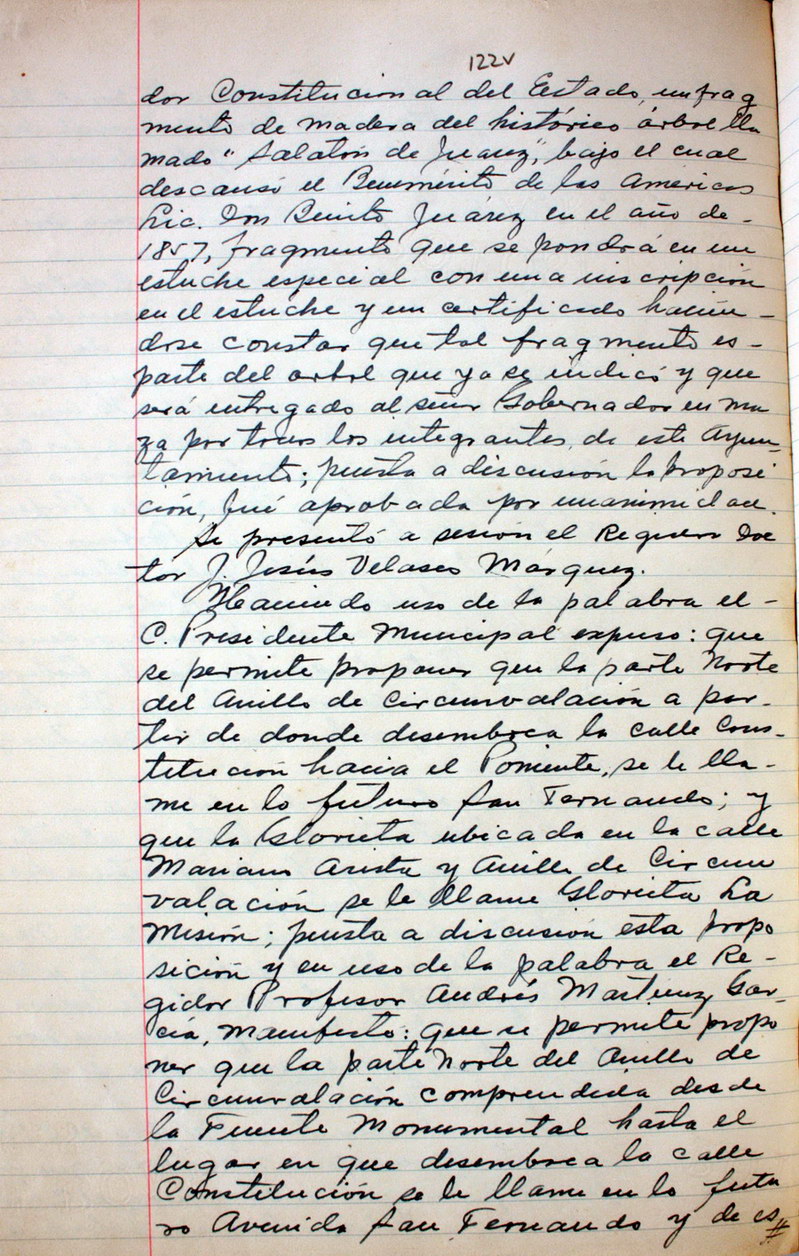 122v
dor Constitucional del Estado, un frag
mento de madera del histórico árbol lla
mado "Salatón de Juarez", bajo el cual
descansó el Benemérito de las Americas
Lic. Don Benito Juárez en el año de -
1857, fragmento que se pondrá en un
estuche especial con una inscripción
en el estuche y un certificado hacien -
dose constar que tal fragmento es -
parte del arbol que ya se indicó y que
será entregado al señor Gobernador en ma
za por todos los integrantes de este Ayun-
tamiento; puesta a discusión la proposi
ción, fué aprobada por unanimidad.
Se presentó a sesion el Regidor Doc
tor J. Jesús Velasco Márquez.
Haciendo uso de la palabra el -
C. Presidente Municipal expuso: que
se permite proponer que la parte Norte
del Anillo de Circunvalación a par-
tir de donde desemboca la calle Cons-
titución hacia el Poniente, se le lla -
me en lo futuro San Fernando; y
que la Glorieta ubicada en la calle
Mariano Arista y Anillo de Circun
valación se le llame Glorieta La
Misión; puesta a discusión esta propo
sición y en uso de la palabra el Re -
gidor Profesor Andrés Martinez Gar-
cia, manifesto: que se permite propo
ner que la parte Norte del Anillo de
Circunvalación comprendida desde
la Fuente Monumental hasta el
lugar en que desemboca la calle
Constitución se le llame en lo futu
ro Avenida San Fernando y de es//